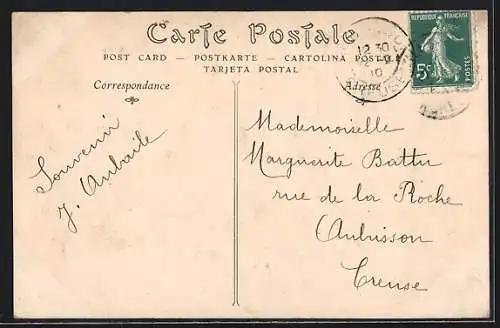 Carte Postale
POST CARD — POSTKARTE — CARTOLINA POSTALE
TARJETA POSTAL
Correspondance
Adresse
RÉPUBLIQUE FRANÇAISE
5c
POSTES
12 30
10
CREUSE
Souvenir
J. Aubaile
Mademoiselle
Marguerite Battu
rue de la Roche
Aubusson
Creuse